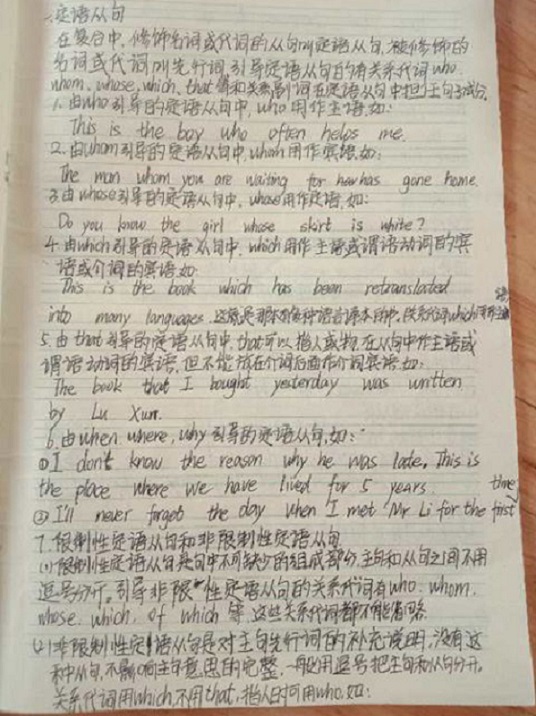 定语从句
在复合中,修饰名词或代词的从句叫定语从句,被修饰的
名词或代词叫先行词,引导定语从句的有关系代词who
whom, whose, which, that 和关系副词在定语从句中担句子成分.
1.由who引导的定语从句中, who用作主语,如:
This is the boy who often helps me.
2.由whom引导的定语从句中,whom用作宾语,如:
The man whom you are waiting for has gone home.
3.由whose引导的定语从句中,whose用作定语,如:
Do you know the girl whose skirt is white?
4.由which引导的定语从句中,which用作主语或谓语动词的宾
语或介词的宾语如:
This is the book which has been retranslated
into many languages. 这就是那本种语言译本的书.
5.由that引导的定语从句中,that可以指人或物,在从句中作主语或
谓语动词的宾语,但不能放在介词后面作介词宾语.如:
The book that I bought yesterday was written
by Lu Xun.
6.由when where, why引导的定语从句,如:
①I don't know the reason why he was late. This is
the place where we have lived for 5 years. time
②I'll never forget the day when I met Mr Li for the first
7.限制性定语从句和非限制性定语从句
(1)限制性定语从句是句中不可缺少的组成部分,主句和从句之间不用
逗号分开。引导非限性定语从句的关系代词有who. whom.
whose. which. of which 等.这些关系代词都不能省略.
(2)非限制性定语从句是对主句先行词的补充说明,没有这
种从句,不影响主句意思的完整,一般用逗号把主句和从句分开。
关系代词用which,不用that,指人时可用who.如: